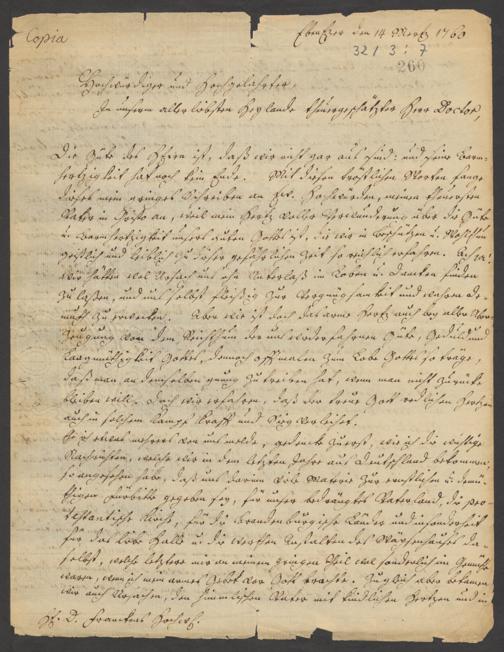 Copia
Ebenezer den 14 Mertz 1760
32 / 3 : 7
260
Hochwürdiger und Hochgelahrter,
In unserm allerliebsten Heylande theuergeschätzter Herr Doctor,
Die Güte des Herrn ist, daß wir nicht gar aus sind: und seine Barm-
hertzigkeit hat noch kein Ende. Mit diesen tröstlichen Worten fange
dieses mein geringes Schreiben an Ew. Hochwürden, meinen theuersten
Vater in Christo an, weil mein Hertz voller Verwunderung über die Güte
u. Barmhertzigkeit unsers guten Gottes ist, die wir in Beschützen u. Wohlthun
geistlich und leiblich zu dieser gefährlichen Zeit so reichlich erfahren.
Wir hätten wol Ursach uns ohn Unterlaß in Loben u. Dancken finden
zu laßen, und uns selbst fleißig zur Vergnügsamkeit und wahren De-
muth zu erwecken. Aber wie ist doch das arme Hertz auch bey aller Uber-
zeugung von dem Reichthum der uns wiederfahrnen Güte, Geduld und
Langmüthigkeit Gottes, dennoch offtmalen zum Lobe Gottes so träge,
daß man an demselben genug zu treiben hat, wenn man nicht zurücke
bleiben will. Doch wir erfahren, daß der treue Gott redlichen Hertzen
auch in solchem Kampf Krafft und Sieg verleihet.
Ehe ich etwas mehrers von uns melde, gedencke zuerst, wie ich die wichtige
Nachrichten, welche wir in dem letzten Jahre aus Deutschland bekommen,
so angesehen habe, daß uns darinn viele Materie zur ernstlichen u. demü-
thigen Fürbitte gegeben sey, für unser bedrängtes Vaterland, die pro-
testantische Kirche, für die Brandenburgische Länder und insonderheit
für das liebe Halle und die werthen Anstalten des Wäysenhauses da-
selbst, welche letztere mir an meinem geringen Theil wol sonderlich im Gemüthe
waren, wenn ich mein armes Gebet vor Gott brachte. Zugleich aber bekamen
wir auch Ursachen, den himmlischen Vater mit kindlichen Hertzen und in
H. D. Franckens Hochw.